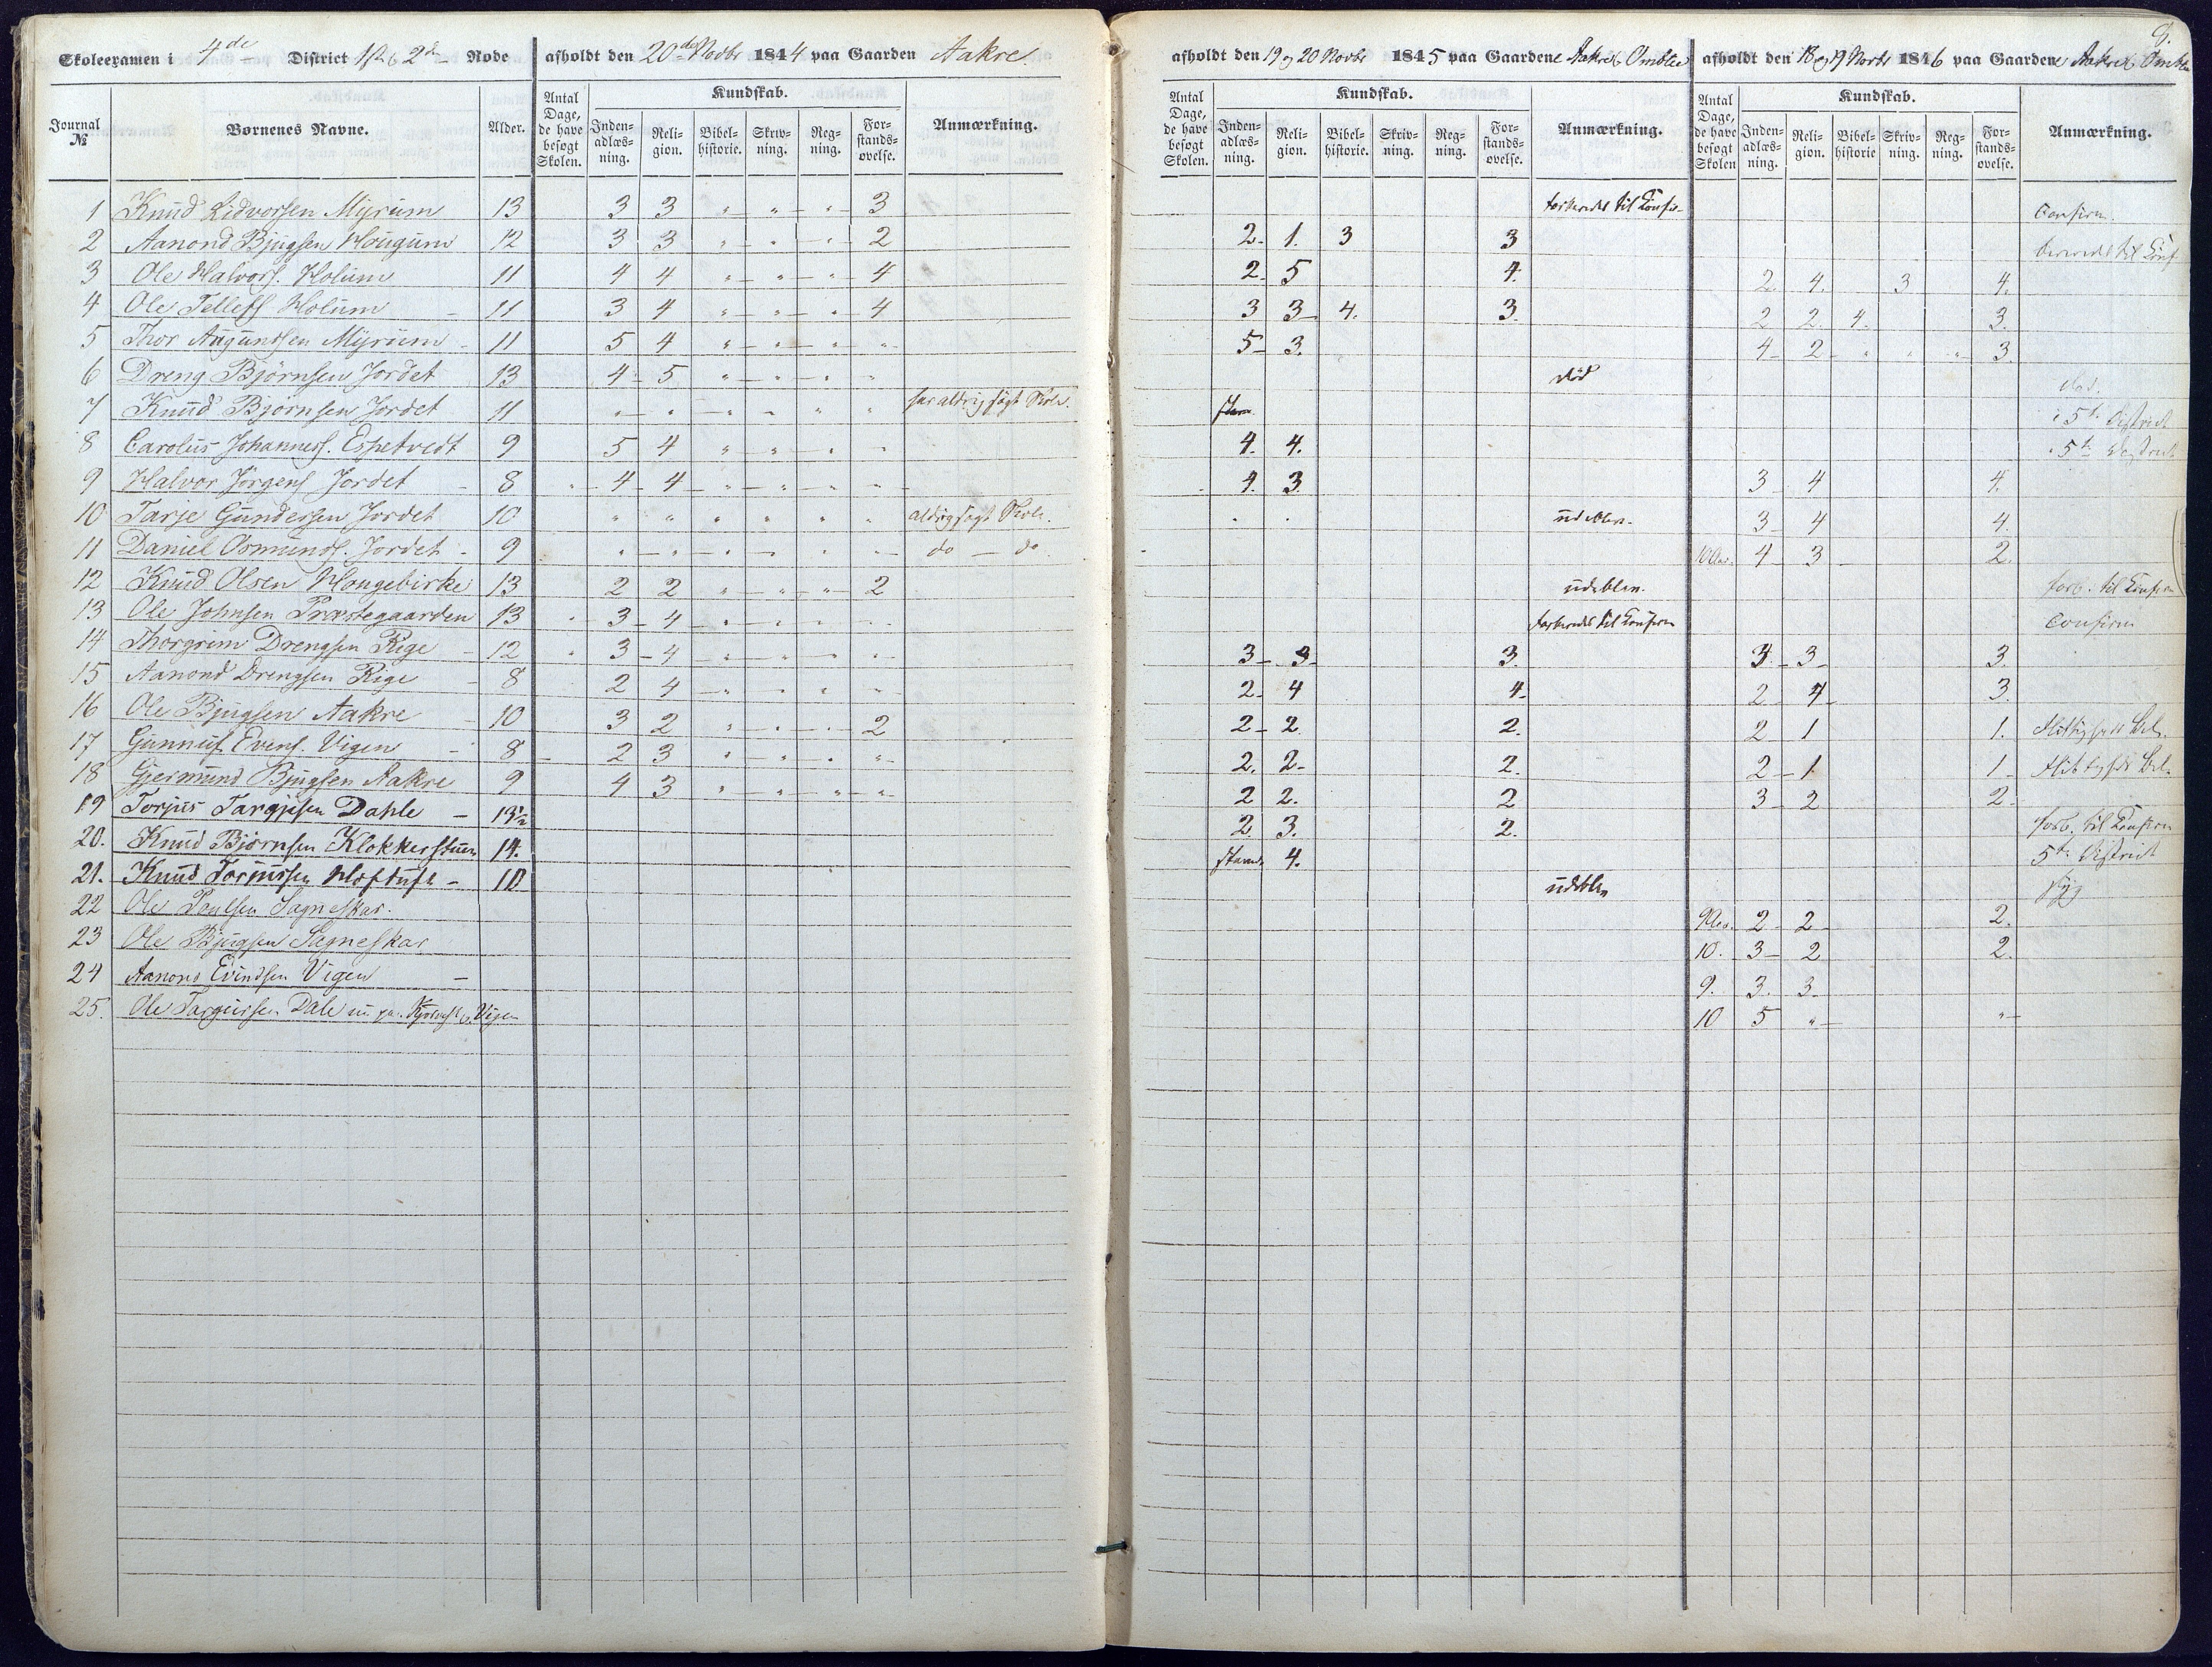 9.
Skoleexamen i 4de District 1ste & 2den Rode afholdt den 20de Novbr 1844 paa Gaarden Aakre
afholdt den 19 og 20 Novbr 1845 paa Gaardene Aakre & Omblie afholdt den 18 og 19 Novbr 1846 paa Gaardene Aakre &
Journal № Børnenes Navne. Alder. Antal Dage, de have besøgt Skolen. Kundskab. Inden-adlæs-ning. Reli-gion. Bibel-historie. Skriv-ning. Reg-ning. For-stands-øvelse. Anmærkning.
Antal Dage, de have besøgt Skolen. Kundskab. Inden-adlæs-ning. Reli-gion. Bibel-historie. Skriv-ning. Reg-ning. For-stands-øvelse. Anmærkning.
Antal Dage, de have besøgt Skolen Kundskab. Inden-adlæs-ning. Reli-gion. Bibel-historie Skriv-ning. Reg-ning. For-stands-øvelse. Anmærkning.
1 Knud Lidvorsen Myrum 13 3 3 " " " 3 til Confir Confirm.
2 Aanond Bjugsen Haugum 12 3 3 " " " 2 2 1. 3 3 til Conf
3 Ole Halvors. Holum 11 4 4 " " " 4 2 5 4. 2 4. 3 4.
4 Ole Tellefs Holum 11 3 4 " " " 4 3 3 4. 3. 2 2. 4. 3.
5 Thor Augundsen Myrum 11 5 4 " " " " 5 3. 4 2 " " " 3.
6 Dreng Bjørnsen Jordet 13 4 5 " " " død død.
7 Knud Bjørnsen Jordet 11 " " " " " " har aldrig søgt Skole. 5te District
8 Carolus Johanness. Espetvedt 9 5 4 " " " " 4. 4. 5te District
9 Halvor Jørgens Jordet 8 4 4 " " " " 4. 3 3 4 4.
10 Tarje Gundersen Jordet 10 " " " " " " aldrig søgt Skole. udebleven. 3 4 4.
11 Daniel Osmunds. Jordet 9 " " " " " " do do 10 Aar. 4 3 2.
12 Knud Olsen Haugebirke 13 2 2 " " " 2 udeblev. forb. til Confirm
13 Ole Johnsen Præstegaarden 13 3 4 " " " " forberedt til Confirm Confirm
14 Thorgrim Drengsen Rige 12 3 4 " " " " 3 3 3. 3 3 3.
15 Aanond Drengsen Rige 8 2 4 " " " " 2 4 4 2 4 3.
16 Ole Bjugsen Aakre 10 3 2 " " " 2 2 2. 2. 2 1 1.
17 Gunnuf Evens. Vigen 8 2 3 " " " " 2. 2 2. 2 1 1
18 Gjermund Bjugsen Aakre 9 4 3 " " " " 2 2. 2 3 2 2
19 Torjus Targjesen Dahle 13½ 2 3. 2. forb. til Confirm
20. Knud Bjørnsen Klokkerstuen 14. 4. 5te District
21. Knud Torjussen 10 udeblev syg
22 Ole Paulsen Sagneskar. 9 Aar. 2 2 2.
23 Ole Bjugsen Sagneskar 10. 3 2 2.
24 Aanond Evindsen Vigen 9. 3. 3.
25. Ole Dale Vigen 10 5 " "